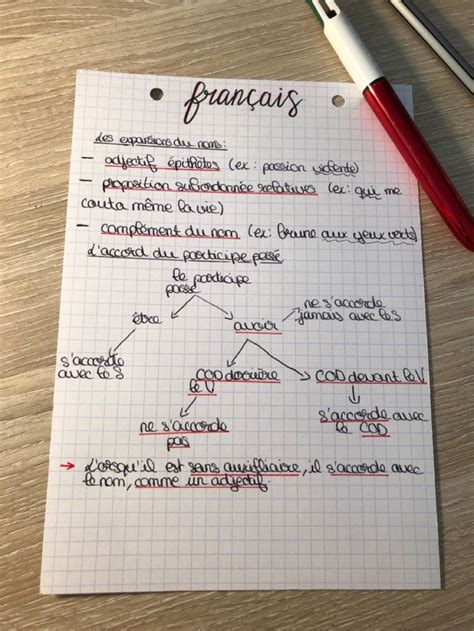 français
Les expansions du nom :
- adjectif épithètes (ex: passion violente)
- proposition subordonnée relatives (ex: qui me
couta même la vie)
- complément du nom (ex: brune aux yeux verts)
L'accord du participe passé
le participe
passé
être
avoir
ne s'accorde
jamais avec le S
s'accorde
avec le S
COD derrière
le V
COD devant le V
ne s'accorde
pas
s'accorde avec
le COD
→ Lorsqu'il est sans auxiliaire, il s'accorde avec
le nom, comme un adjectif.